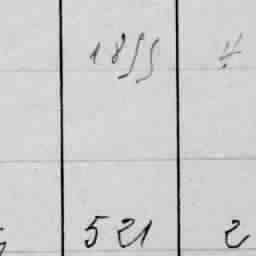 1855
521 2